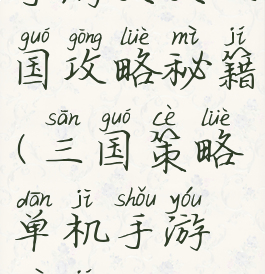 guó gōng lüè mì jí
国攻略秘籍
sān guó cè lüè
（三国策略
dān jī shǒu yóu
单机手游